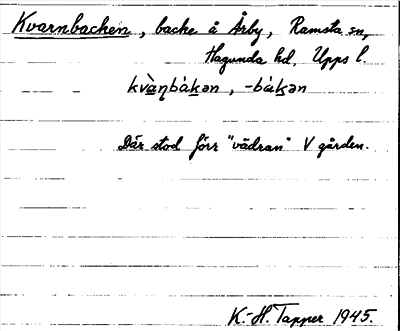 Kvarnbacken, backe å Årby, Ramsta sn,
Hagunda hd, Upps l.
kvàṇbákən, -bákən
Där stod förr "vädran" V gården.
K.-H. Tapper 1945.